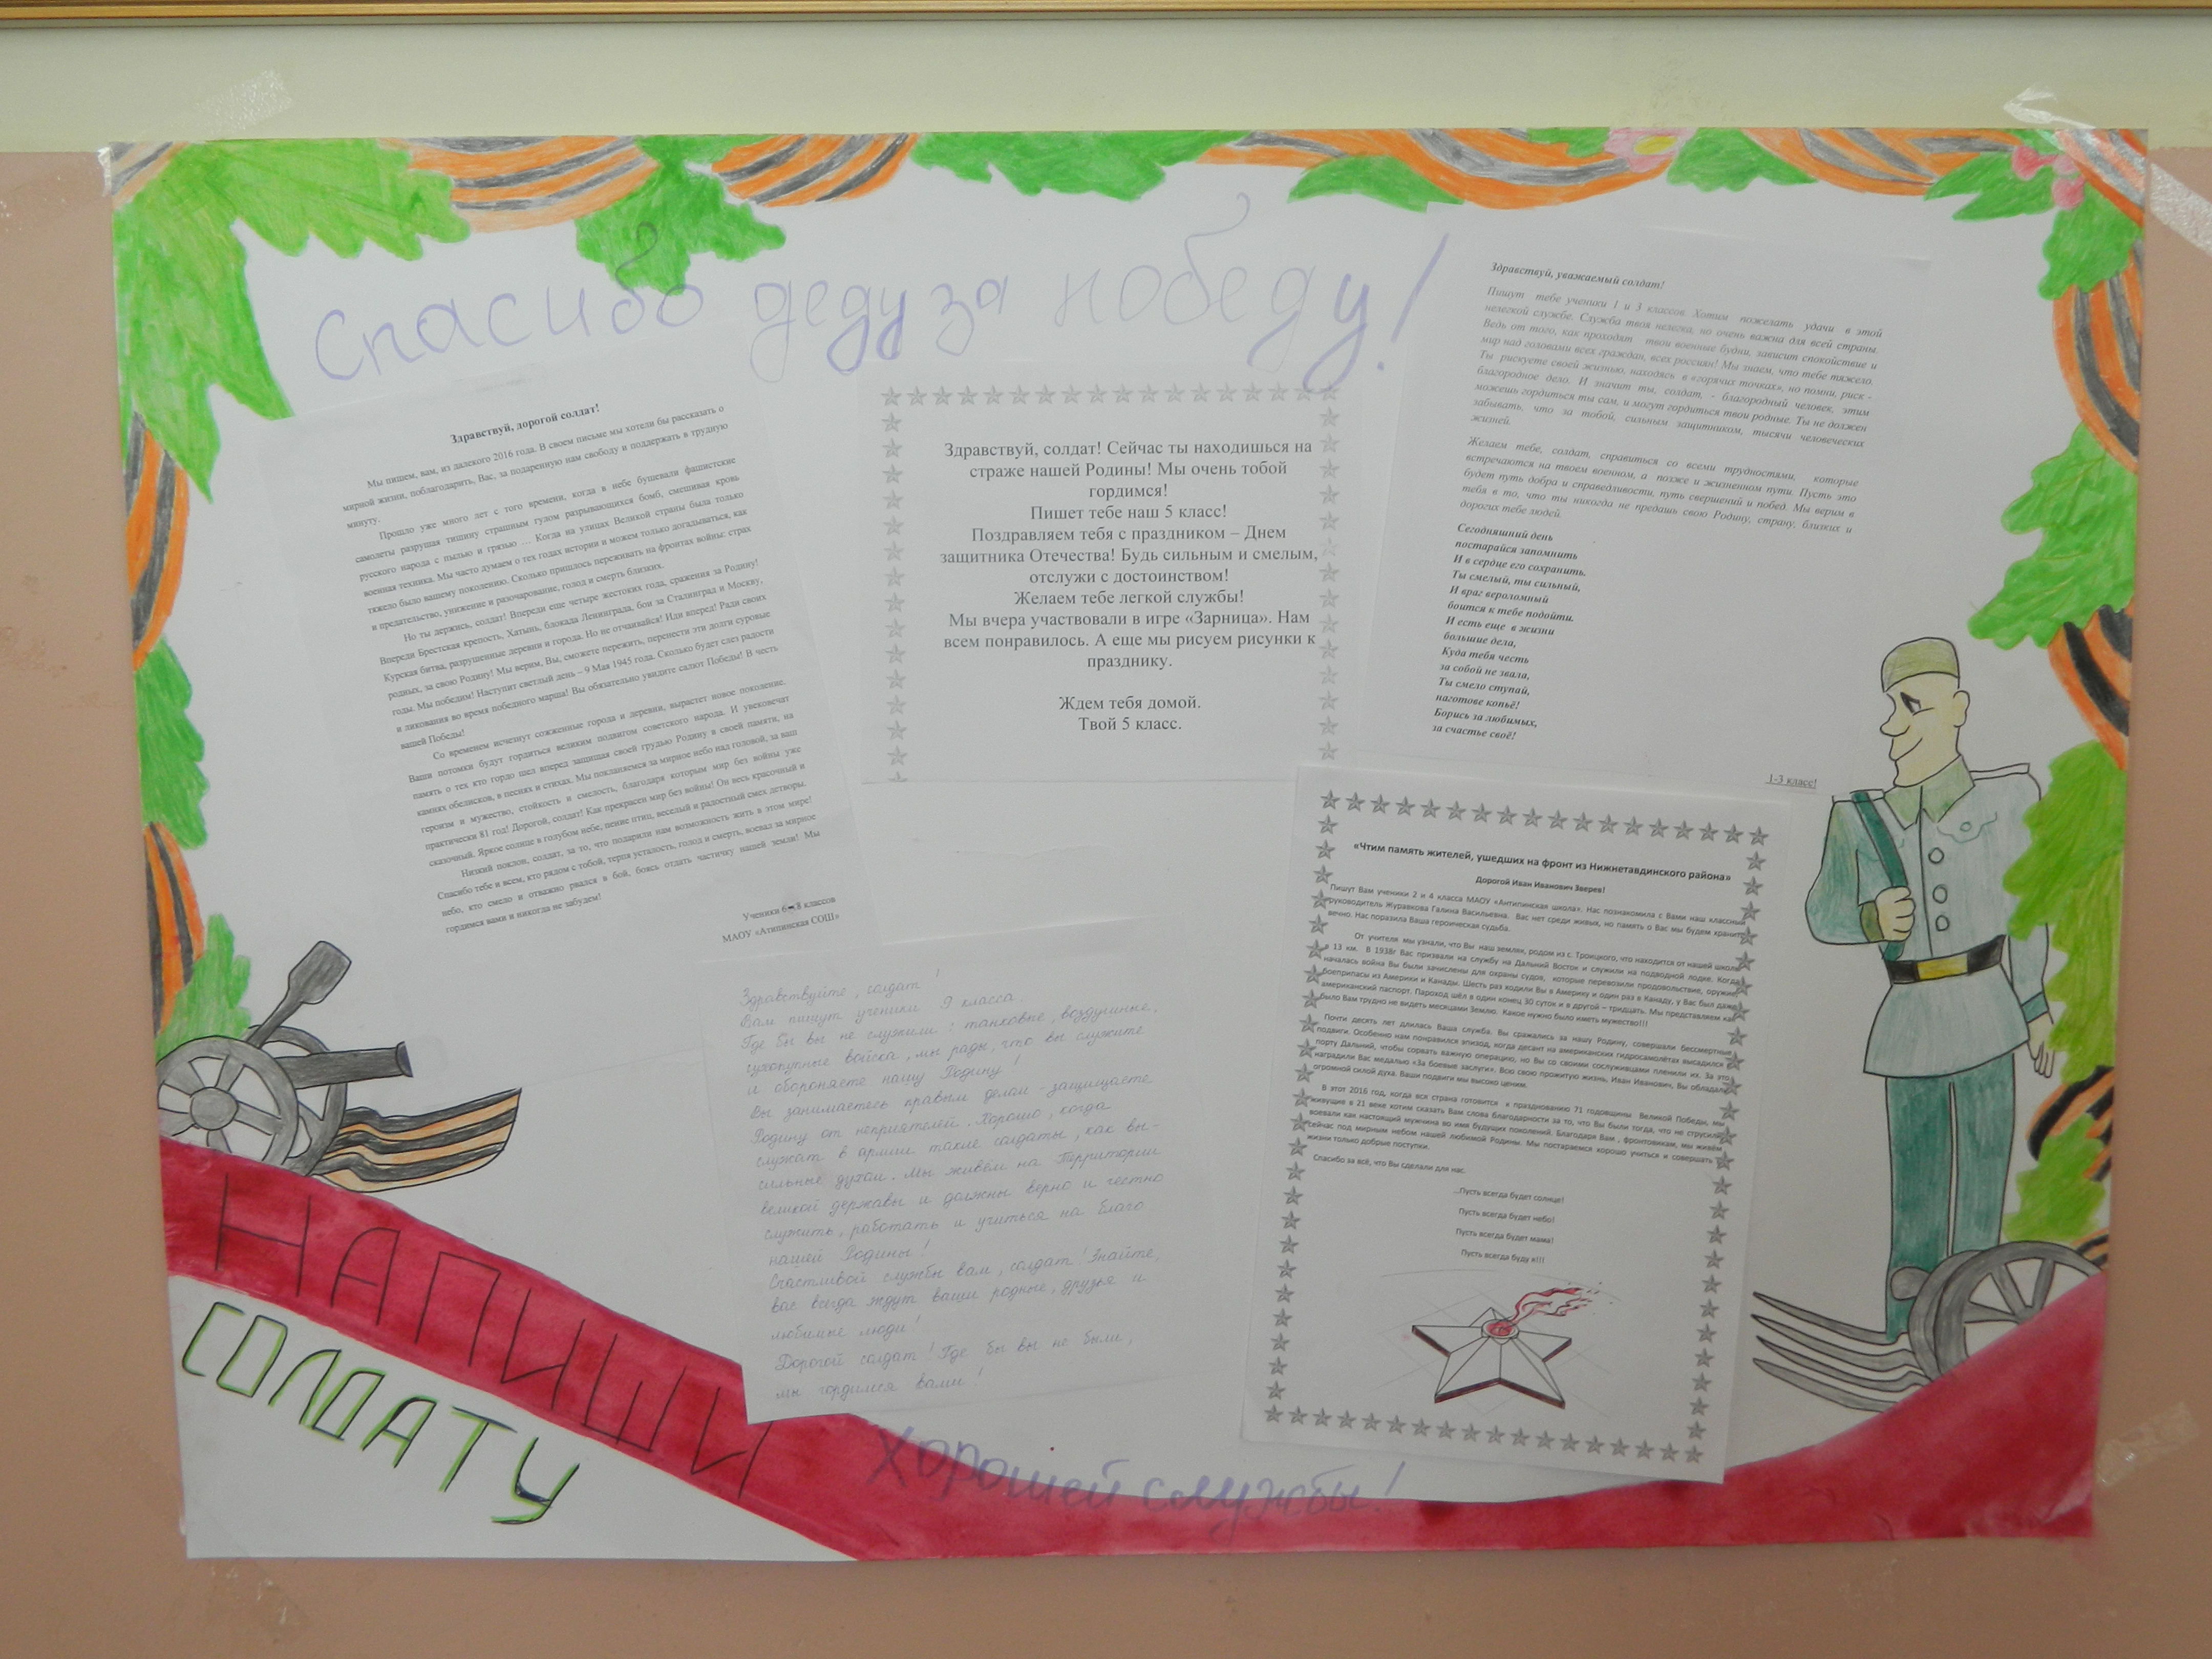 Спасибо деду за победу!
Здравствуй, дорогой солдат!
Мы пишем, вам, из далекого 2016 года. В своем письме мы хотели бы рассказать о
мирной жизни, поблагодарить, Вас, за подаренную нам свободу и поддержать в трудную
минуту.
Прошло уже много лет с того времени, когда в небе бушевали фашистские
самолеты разрушая тишину страшным гулом разрывающихся бомб, смешивая кровь
русского народа с пылью и грязью … Когда на улицах Великой страны была только
военная техника. Мы часто думаем о тех годах истории и можем только догадываться, как
тяжело было вашему поколению. Сколько пришлось переживать на фронтах войны: страх
и предательство, унижение и разочарование, голод и смерть близких.
Но ты держись, солдат! Впереди еще четыре жестоких года, сражения за Родину!
Впереди Брестская крепость, Хатынь, блокада Ленинграда, бои за Сталинград и Москву,
Курская битва, разрушенные деревни и города. Но не отчаивайся! Иди вперед! Ради своих
родных, за свою Родину! Мы верим, Вы, сможете пережить, перенести эти долги суровые
годы. Мы победим! Наступит светлый день – 9 Мая 1945 года. Сколько будет слез радости
и ликования во время победного марша! Вы обязательно увидите салют Победы! В честь
вашей Победы!
Со временем исчезнут сожженные города и деревни, вырастет новое поколение.
Ваши потомки будут гордиться великим подвигом советского народа. И увековечат
память о тех кто гордо шел вперед защищая своей грудью Родину в своей памяти, на
камнях обелисков, в песнях и стихах. Мы поклоняемся за мирное небо над головой, за ваш
героизм и мужество, стойкость и смелость, благодаря которым мир без войны уже
практически 81 год! Дорогой, солдат! Как прекрасен мир без войны! Он весь красочный и
сказочный. Яркое солнце в голубом небе, пение птиц, веселый и радостный смех детворы.
Низкий поклон, солдат, за то, что подарили нам возможность жить в этом мире!
Спасибо тебе и всем, кто рядом с тобой, терпя усталость, голод и смерть, воевал за мирное
небо, кто смело и отважно рвался в бой, боясь отдать частичку нашей земли! Мы
гордимся вами и никогда не забудем!
Ученики 6-8 классов
МАОУ «Атипинская СОШ»
Здравствуй, солдат! Сейчас ты находишься на
страже нашей Родины! Мы очень тобой
гордимся!
Пишет тебе наш 5 класс!
Поздравляем тебя с праздником – Днем
защитника Отечества! Будь сильным и смелым,
отслужи с достоинством!
Желаем тебе легкой службы!
Мы вчера участвовали в игре «Зарница». Нам
всем понравилось. А еще мы рисуем рисунки к
празднику.
Ждем тебя домой.
Твой 5 класс.
Здравствуй, уважаемый солдат!
Пишут тебе ученики 1 и 3 классов. Хотим пожелать удачи в этой
нелегкой службе. Служба твоя нелегка, но очень важна для всей страны.
Ведь от того, как проходят твои военные будни, зависит спокойствие и
мир над головами всех граждан, всех россиян! Мы знаем, что тебе тяжело.
Ты рискуете своей жизнью, находясь в «горячих точках», но помни, риск -
благородное дело. И значит ты, солдат, - благородный человек, этим
можешь гордиться ты сам, и могут гордиться твои родные. Ты не должен
забывать, что за тобой, сильным защитником, тысячи человеческих
жизней.
Желаем тебе, солдат, справиться со всеми трудностями, которые
встречаются на твоем военном, а позже и жизненном пути. Пусть это
будет путь добра и справедливости, путь свершений и побед. Мы верим в
тебя в то, что ты никогда не предашь свою Родину, страну, близких и
дорогих тебе людей.
Сегодняшний день
постарайся запомнить
И в сердце его сохранить.
Ты смелый, ты сильный,
И враг вероломный
боится к тебе подойти.
И есть еще в жизни
большие дела,
Куда тебя честь
за собой не звала,
Ты смело ступай,
наготове копьё!
Борись за любимых,
за счастье своё!
1-3 класс!
Здравствуйте, солдат!
Вам пишут ученики 9 класса.
Где бы вы не служили: танковые, воздушные,
сухопутные войска, мы рады, что вы служите
и обороняете нашу Родину!
Вы занимаетесь правым делом - защищаете
Родину от неприятелей. Хорошо, когда
служат в армии такие солдаты, как вы -
сильные духом. Мы живём на территории
великой державы и должны верно и честно
служить, работать и учиться на благо
нашей Родины!
Счастливой службы вам, солдат! Знайте,
вас всегда ждут ваши родные, друзья и
любимые люди!
Дорогой солдат! Где бы вы не были,
мы гордимся вами!
«Чтим память жителей, ушедших на фронт из Нижнетавдинского района»
Дорогой Иван Иванович Зверев!
Пишут Вам ученики 2 и 4 класса МАОУ «Антипинская школа». Нас познакомила с Вами наш классный
руководитель Журавкова Галина Васильевна. Вас нет среди живых, но память о Вас мы будем хранить
вечно. Нас поразила Ваша героическая судьба.
От учителя мы узнали, что Вы наш земляк, родом из с. Троицкого, что находится от нашей школы
в 13 км. В 1938г Вас призвали на службу на Дальний Восток и служили на подводной лодке. Когда
началась война Вы были зачислены для охраны судов, которые перевозили продовольствие, оружие,
боеприпасы из Америки и Канады. Шесть раз ходили Вы в Америку и один раз в Канаду, у Вас был даже
американский паспорт. Пароход шёл в один конец 30 суток и в другой – тридцать. Мы представляем как
было Вам трудно не видеть месяцами Землю. Какое нужно было иметь мужество!!!
Почти десять лет длилась Ваша служба. Вы сражались за нашу Родину, совершали бессмертные
подвиги. Особенно нам понравился эпизод, когда десант на американских гидросамолётах высадился в
порту Дальний, чтобы сорвать важную операцию, но Вы со своими сослуживцами пленили их. За это
наградили Вас медалью «За боевые заслуги». Всю свою прожитую жизнь, Иван Иванович, Вы обладали
огромной силой духа. Ваши подвиги мы высоко ценим.
В этот 2016 год, когда вся страна готовится к празднованию 71 годовщины Великой Победы, мы
живущие в 21 веке хотим сказать Вам слова благодарности за то, что Вы были тогда, что не струсили,
воевали как настоящий мужчина во имя будущих поколений. Благодаря Вам, фронтовикам, мы живём
сейчас под мирным небом нашей любимой Родины. Мы постараемся хорошо учиться и совершать
жизни только добрые поступки.
Спасибо за всё, что Вы сделали для нас.
..Пусть всегда будет солнце!
Пусть всегда будет небо!
Пусть всегда будет мама!
Пусть всегда буду я!!!
НАПИШИ
СОЛДАТУ
Хорошей службы!